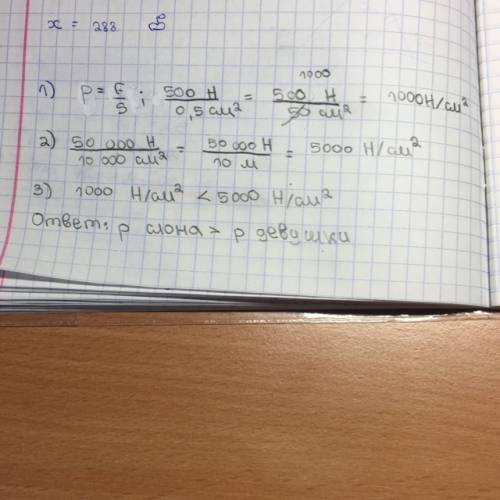 x = 283
1) p = F/S ; 500 Н / 0,5 см² = 1000 500 Н / 50 см² = 1000Н/см²
2) 50 000 Н / 10 000 см² = 50 000 Н / 10 м = 5000 Н/см²
3) 1000 Н/см² < 5000 Н/см²
Ответ: p слона > p девушки